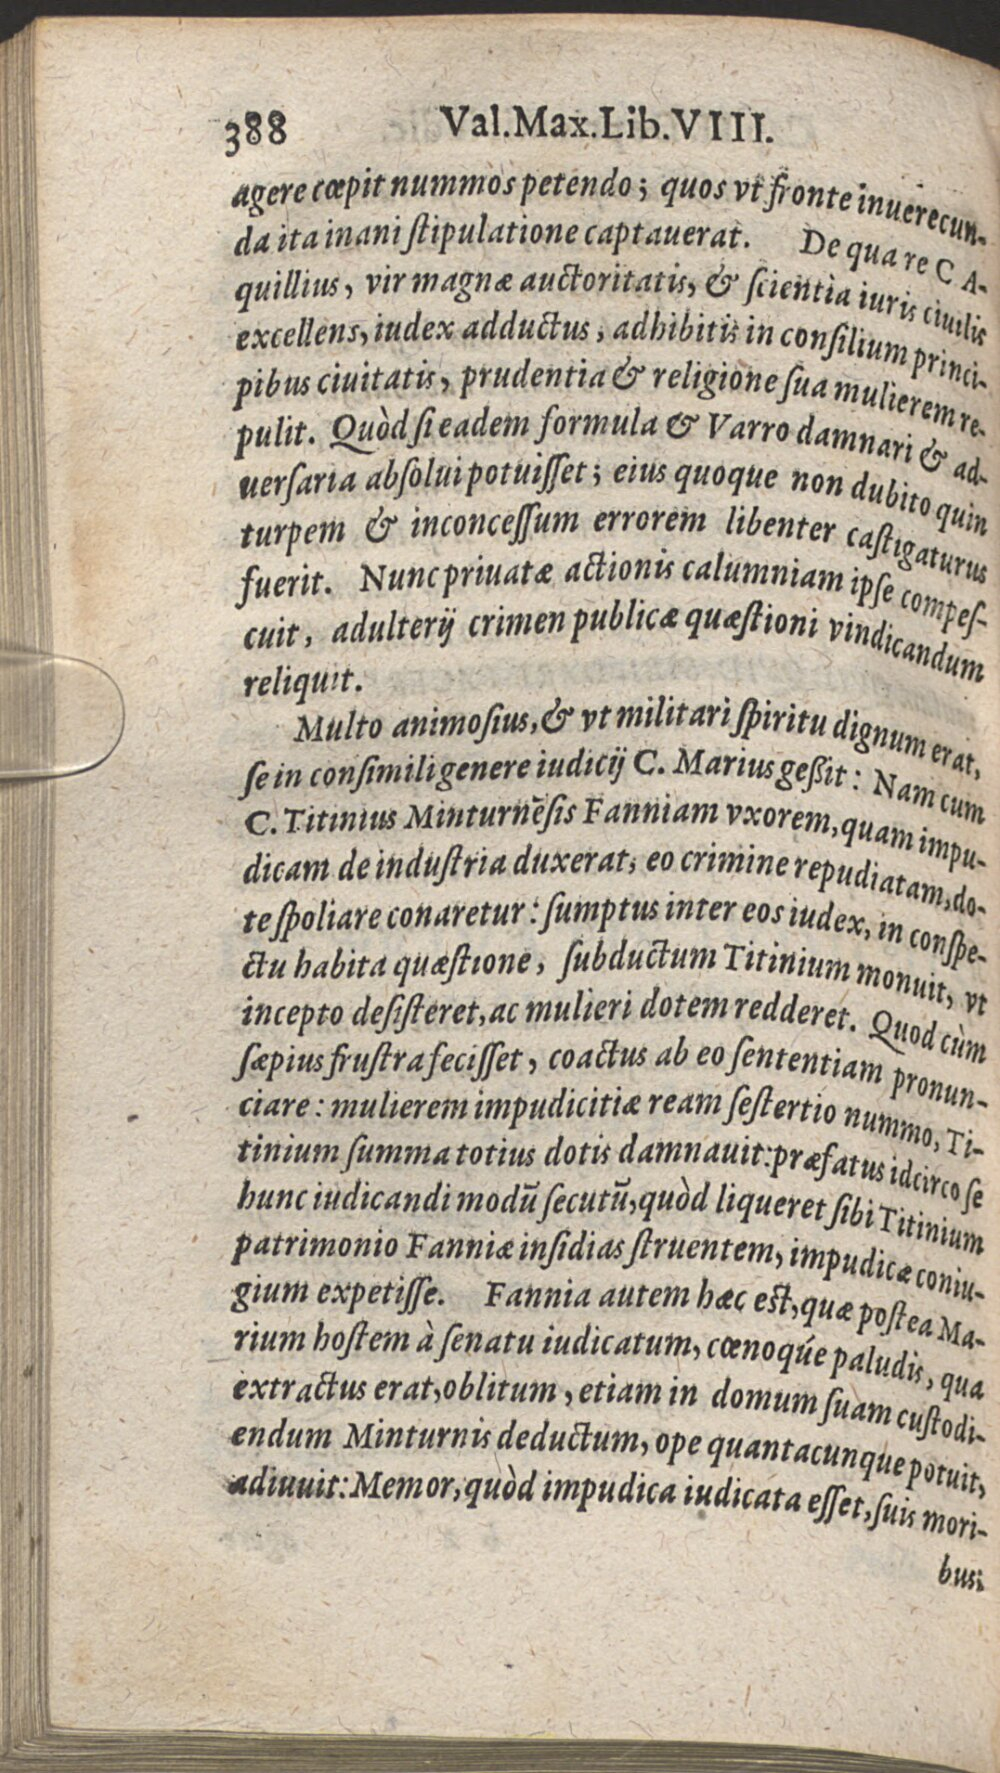 388 Val.Max.Lib.VIII.
agere cœpit nummos petendo; quos vt fronte inuerecun-
da ita inani ſtipulatione captauerat. De qua re C A-
quillius, vir magnæ auctoritatis, & ſcientia iuris ciuilis
excellens, iudex adductus, adhibitis in conſilium princi-
pibus ciuitatis, prudentia & religione ſua mulierem re-
pulit. Quòd ſi eadem formula & Varro damnari & ad-
uerſaria abſolui potuiſſet; eius quoque non dubito quin
turpem & inconceſſum errorem libenter caſtigaturus
fuerit. Nunc priuatæ actionis calumniam ipſe compeſ-
cuit, adulterij crimen publicæ quæſtioni vindicandum
reliquit.
Multo animoſius, & vt militari ſpiritu dignum erat,
ſe in conſimili genere iudicij C. Marius geßit: Nam cum
C. Titinius Minturnēſis Fanniam vxorem, quam impu-
dicam de induſtria duxerat, eo crimine repudiatam, do-
te ſpoliare conaretur: ſumptus inter eos iudex, in conſpe-
ctu habita quæſtione, ſubductum Titinium monuit, vt
incepto deſiſteret, ac mulieri dotem redderet. Quod cùm
ſæpius fruſtra feciſſet, coactus ab eo ſententiam pronun-
ciare: mulierem impudicitiæ ream ſeſtertio nummo, Ti-
tinium ſumma totius dotis damnauit: præfatus idcirco ſe
hunc iudicandi modū ſecutū, quòd liqueret ſibi Titinium
patrimonio Fanniæ inſidias ſtruentem, impudicæ coniu-
gium expetiſſe. Fannia autem hæc eſt, quæ poſtea Ma-
rium hoſtem à ſenatu iudicatum, cœnoqúe paludis, qua
extractus erat, oblitum, etiam in domum ſuam cuſtodi-
endum Minturnis deductum, ope quantacunque potuit,
adiuuit: Memor, quòd impudica iudicata eſſet, ſuis mori-
bus;